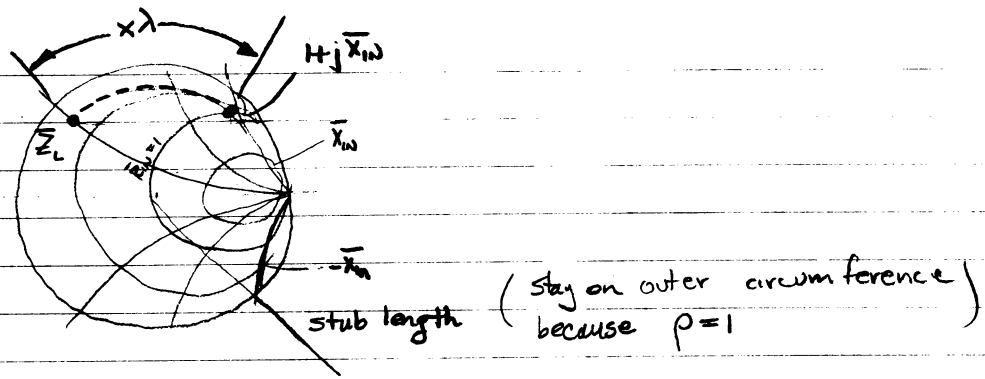 xλ
1+jX̄_IN
Z̄_L
R̄_IN=1
X̄_IN
-X̄_in
stub length
(stay on outer circumference
because ρ=1)